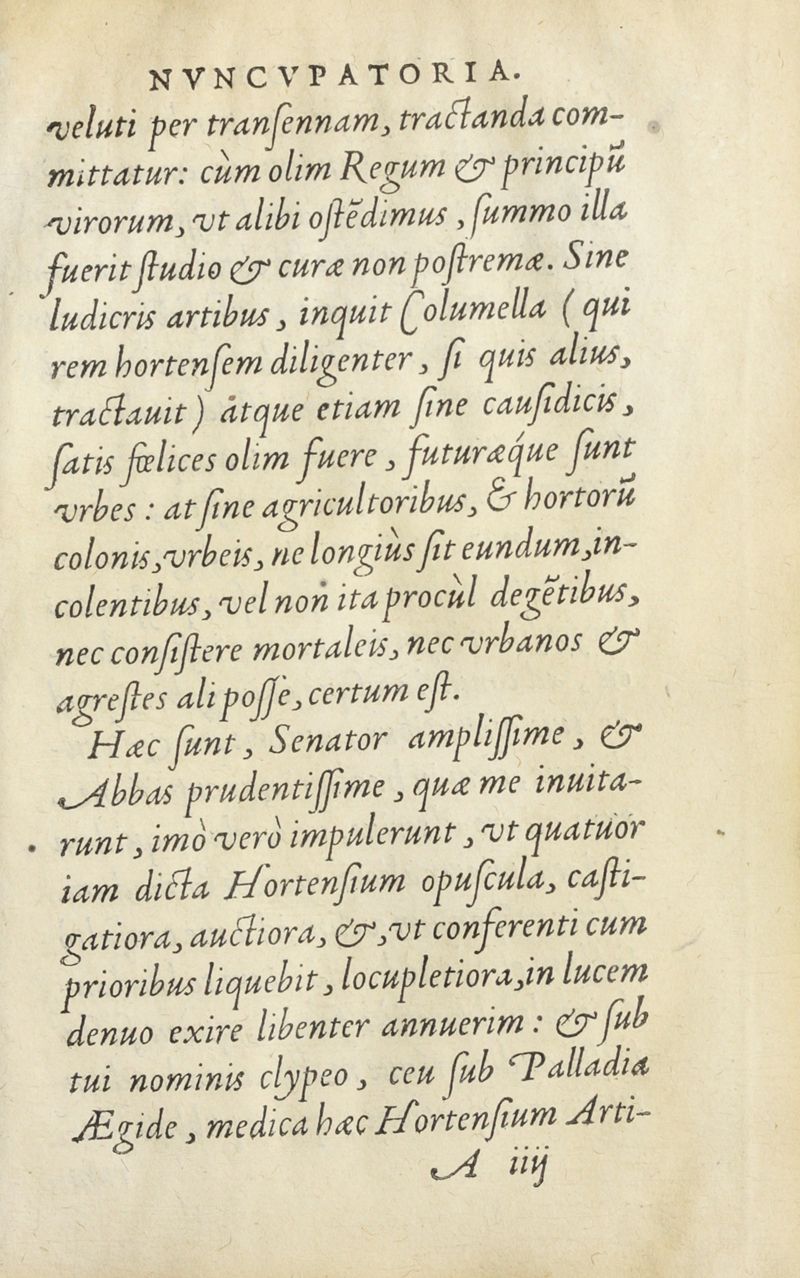 NVNCVPATORIA.
veluti per tranſennam, tractanda com-
mittatur: cùm olim Regum & principū
virorum, vt alibi oſtēdimus, ſummo illa
fuerit ſtudio & curæ non poſtremæ. Sine
ludicris artibus, inquit Columella (qui
rem hortenſem diligenter, ſi quis alius,
tractauit) atque etiam ſine cauſidicis,
ſatis fœlices olim fuere, futuræque ſunt
vrbes: at ſine agricultoribus, & hortorū
colonis, vrbeis, ne longiùs ſit eundum, in-
colentibus, vel non ita procùl degētibus,
nec conſiſtere mortaleis, nec vrbanos &
agreſtes ali poſſe, certum eſt.
Hæc ſunt, Senator ampliſſime, &
Abbas prudentiſſime, quæ me inuita-
runt, imò verò impulerunt, vt quatuor
iam dicta Hortenſium opuſcula, caſti-
gatiora, auctiora, &, vt conferenti cum
prioribus liquebit, locupletiora, in lucem
denuo exire libenter annuerim: & ſub
tui nominis clypeo, ceu ſub Palladia
Ægide, medica hæc Hortenſium Arti-
A iiij